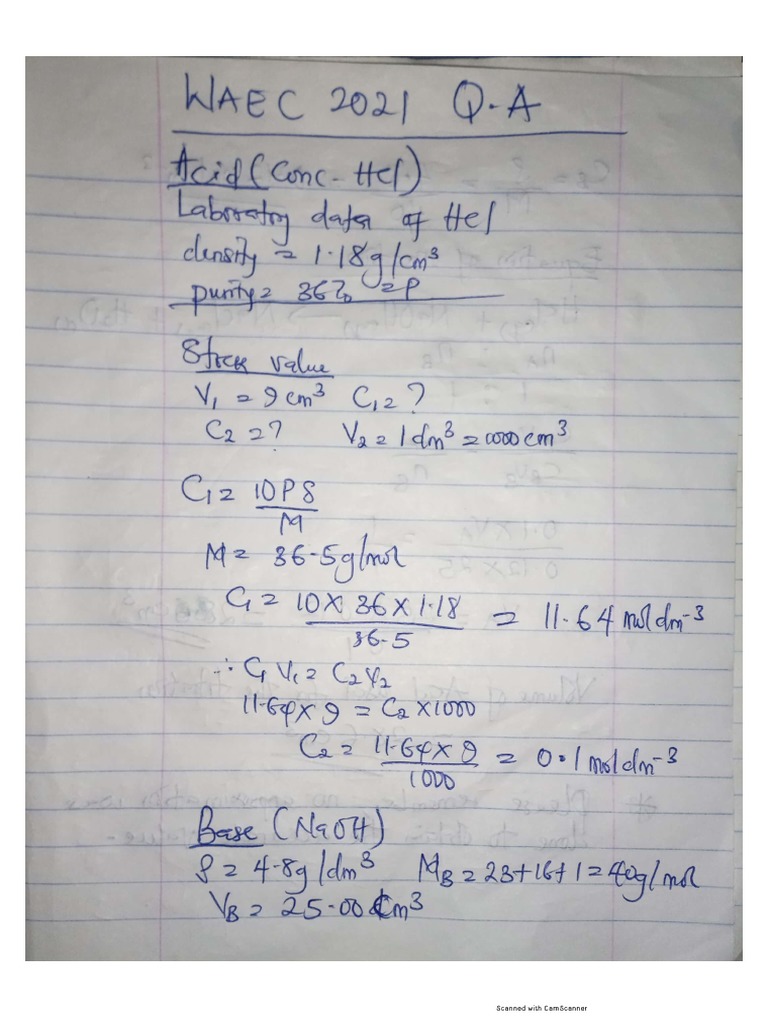 WAEC 2021 Q.A
Acid (Conc. HCl)
Laboratory data of HCl
density = 1.18g/cm³
purity = 36% = P
Stock value
V₁ = 9cm³ C₁ = ?
C₂ = ? V₂ = 1dm³ = 1000cm³
C₁ = 10Pδ
M
M = 36.5g/mol
C₁ = 10 X 36 X 1.18 = 11.64 moldm⁻³
36.5
∴ C₁V₁ = C₂V₂
11.64 X 9 = C₂ X 1000
C₂ = 11.64 X 9 = 0.1 moldm⁻³
1000
Base (NaOH)
ρ = 4.8g/dm³ M_B = 23+16+1 = 40g/mol
V_B = 25.00cm³
Scanned with CamScanner